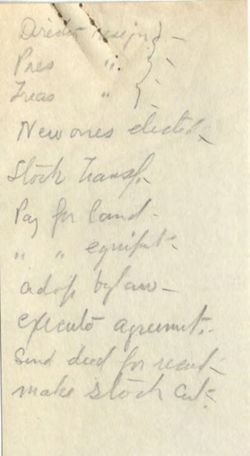 Director resign -
Pres "
Treas "
New ones elected -
Stock Transf.
Pay for land -
" " equipt -
adopt bylaw -
execute agreemnt.
Send deed for record -
make stock cert -